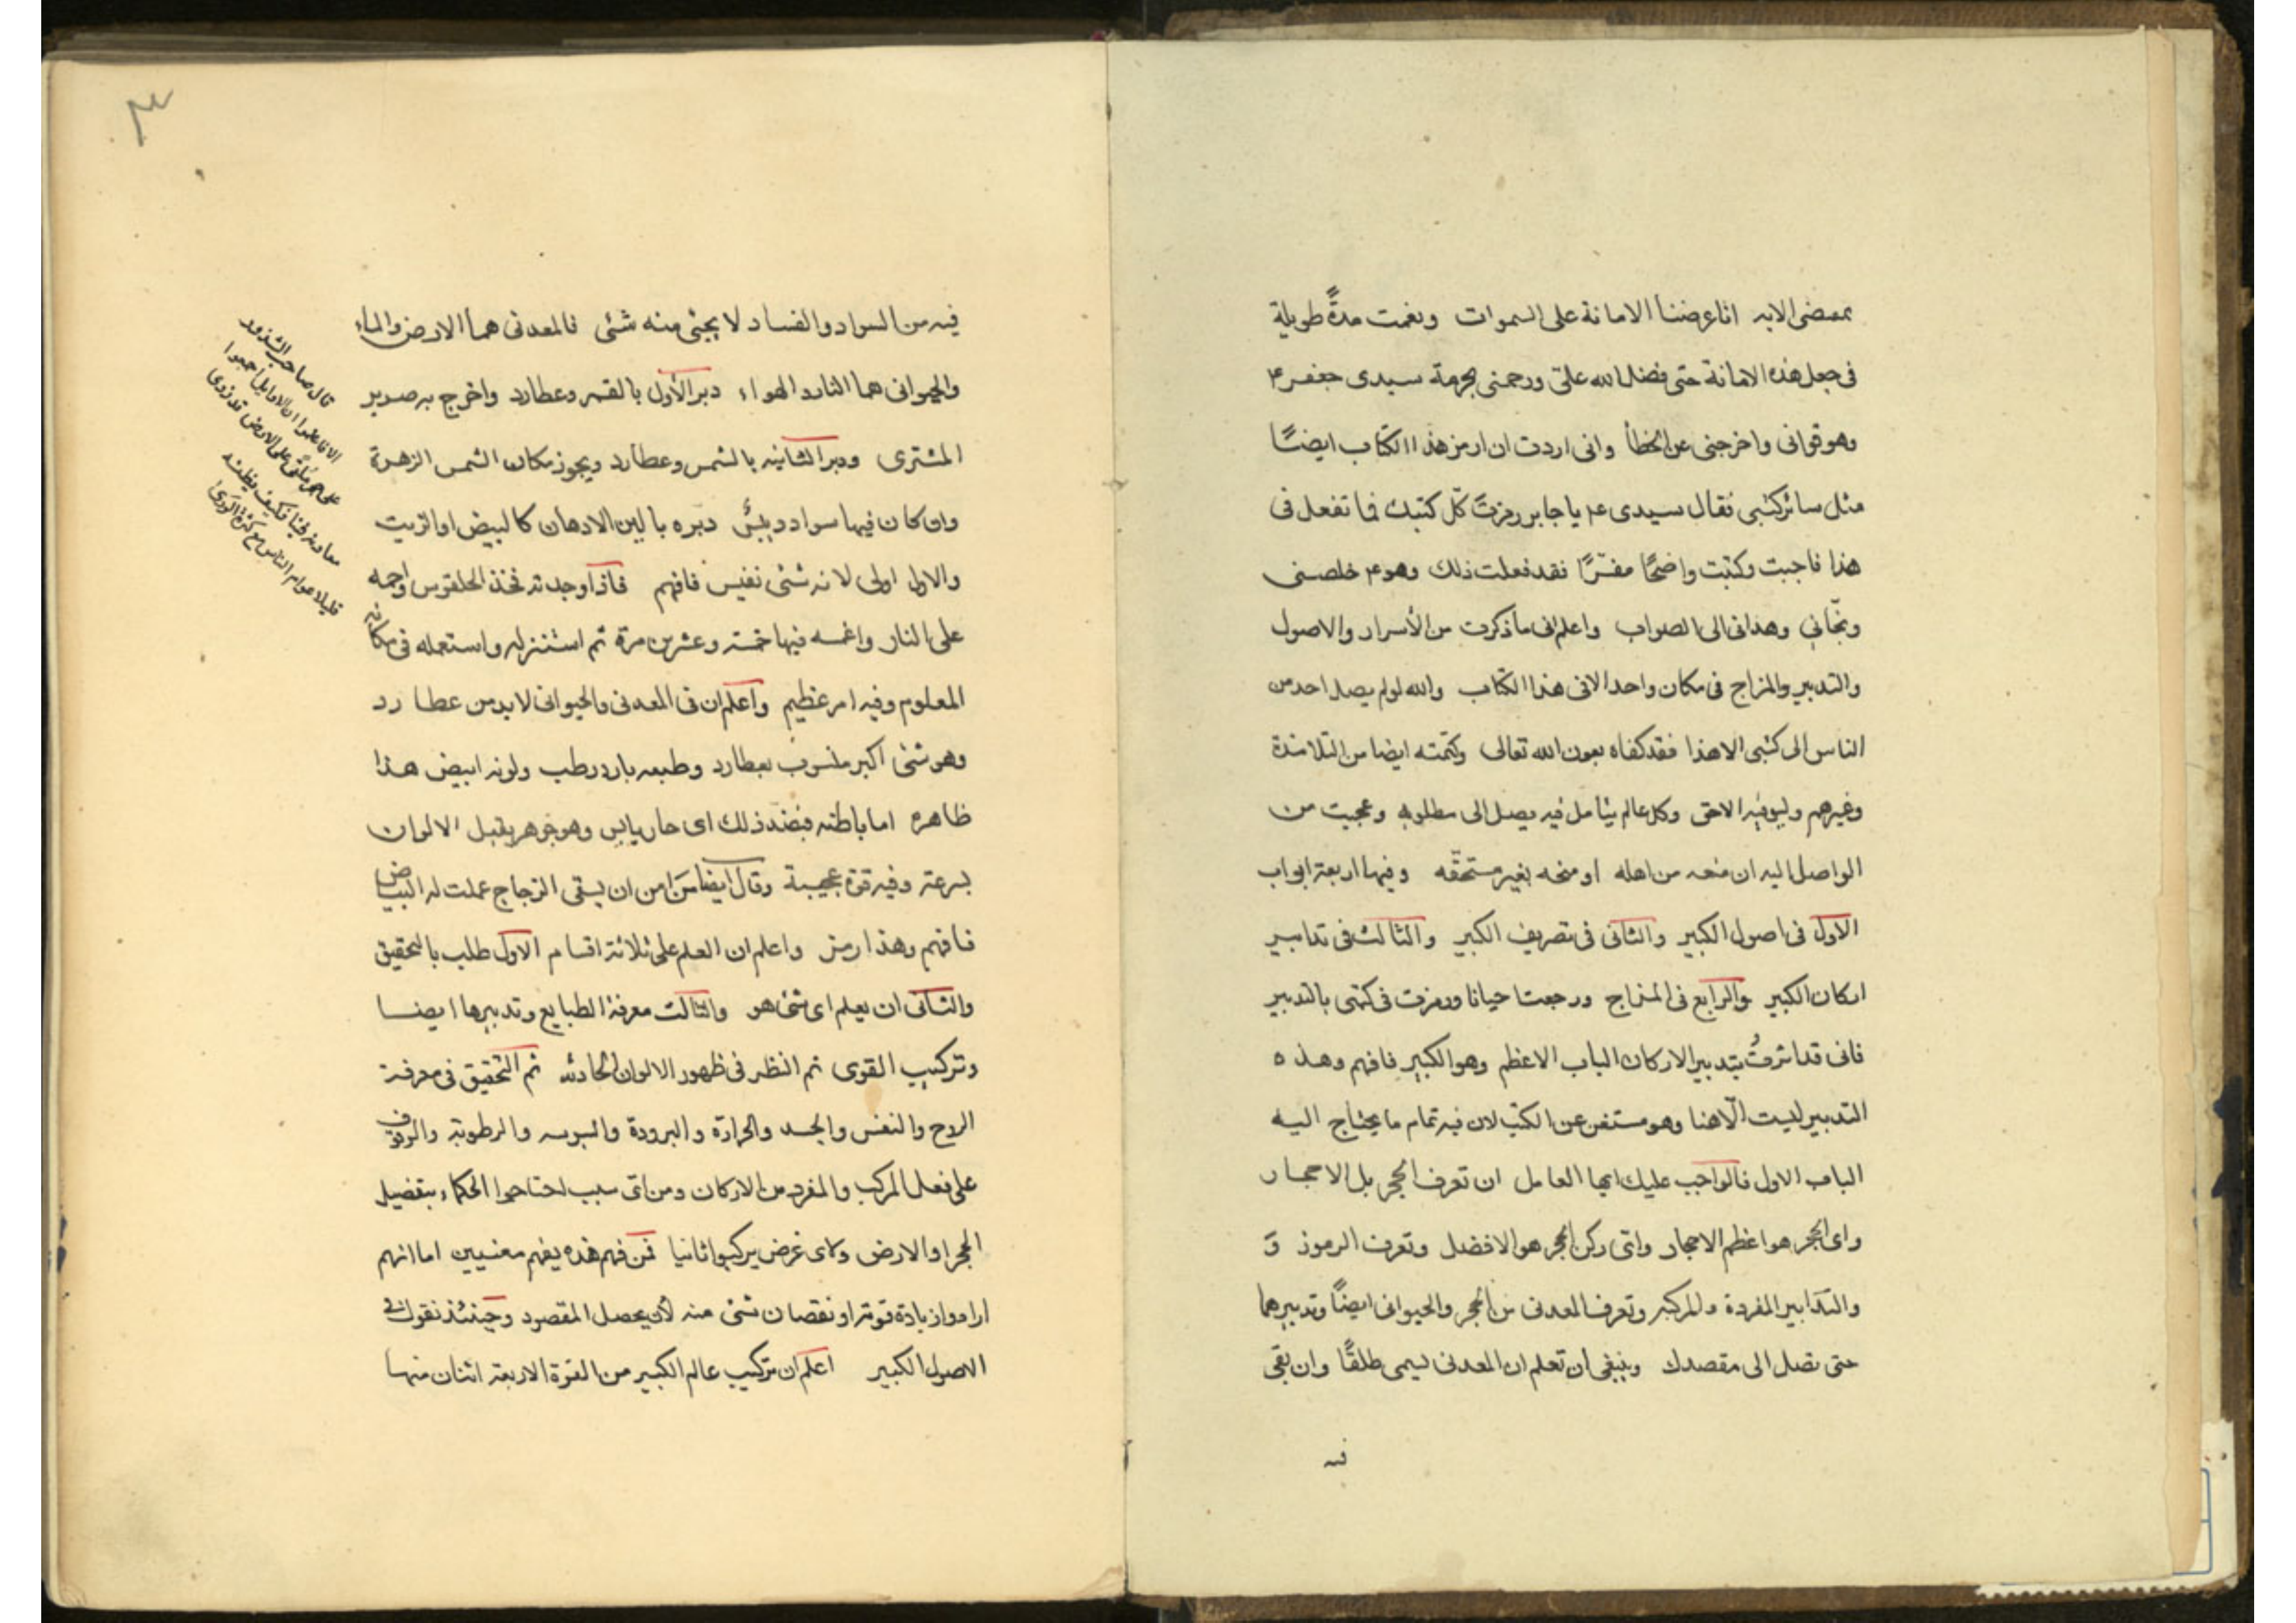 بمقتضى الايه انا عرضنا الامانة على السموات وبقيت مدةً طويلة
فى جعل هذه الامانة حتى فضل الله علىّ ورحمنى بحرمة سيدى جعفر ع
وهو قوانى واخرجنى عن الخطأ وانى اردت ان ارمز هذا الكتاب ايضًا
مثل سائر كتبى فقال سيدى ع يا جابر رمزتَ كلّ كتبك فما تفعل فى
هذا فاجبت وكتبت واضحًا مفسّرًا فقد فعلت ذلك وهو ع خلصنى
ونجّانى وهدانى الى الصواب واعلم انى ما ذكرت من الأسرار والاصول
والتدبير والمزاج فى مكان واحد الا فى هذا الكتاب والله لو لم يصل احد من
الناس الى كتبى الا هذا فقد كفاه بعون الله تعالى وكتمته ايضا من التلامذة
وغيرهم وكل عالم يتامل فيه يصل الى مطلوبه وعجبت من
الواصل اليه ان منعه من اهله او منحه بغير مستحقّه وفيها اربعة ابواب
الاول فى اصول الكبير والثانى فى تصريف الكبير والثالث فى تدابير
اركان الكبير والرابع فى المزاج ورمزت فى كتبى بالتدبير
فانى قد اشرتُ بتدبير الاركان الباب الاعظم وهو الكبير فافهم وهذه
التدبير ليست الّا هنا وهو مستغن عن الكتب لان فيه تمام ما يحتاج اليه
الباب الاول فالواجب عليك ايها العامل ان تعرف الحجر بل الاحجار
واى الحجر هو اعظم الاحجار واىّ ركن الحجر هو الافضل وتعرف الرموز وَ
والتدابير المفردة والمركبه وتعرف المعدنى من الحجر والحيوانى ايضًا وتدبيرهما
حتى تصل الى مقصدك وينبغى ان تعلم ان المعدنى ليسمى طلقًا وان بقى
فيه
٣
فيه من السواد والفساد لا يجئ منه شئى فالمعدنى هما الارض والماء
والحيوانى هما النار والهواء دبر الأول بالقمر وعطارد واخرج به صدير
المشترى ودبر الثانيه بالشمس وعطارد ويجوز مكان الشمس الزهرة
وان كان فيها سواد ويبسٌ دبره بالين الادهان كالبيض او الزيت
والاول اولى لانه شئى نفيس فافهم فاذا وجدته فخذ الحلقوس واحمه
على النار واغمسه فيها خمسة وعشرين مرة ثم استنزله واستعمله فى مكانه
المعلوم وفيه امر عظيم واعلم ان فى المعدنى والحيوانى لابد من عطارد
وهو شئى اكبر منسوب بعطارد وطبعه بارد رطب ولونه ابيض هذا
ظاهره اما باطنه فضد ذلك اى حار يابس وهو جوهر يقبل الالوان
بسرعة وفيه قوة عجيبة وقال ايضا من امن ان يسقى الزجاج عملت له البياض
فافهم وهذا رمز واعلم ان العلم على ثلاثة اقسام الاول طلب بالتحقيق
والثانى ان يعلم اى شئى هو والثالث معرفة الطبايع وتدبيرها ايضا
وتركيب القوى ثم النظر فى ظهور الالوان الحادثه ثم التحقيق فى معرفة
الروح والنفس والجسد والحرارة والبرودة واليبوسه والرطوبة والوقوف
على فعل المركب والمفرد من الاركان ومن اى سبب احتاجوا الحكماء بتفصيل
الحجر او الارض ولاى غرض يركبوا ثانيا فمن فهم هذه يفهم معنيين اما انهم
ارادوا زيادة قوته او نقصان شئى منه لأن يحصل المقصود وحينئذ نقول فى
الاصول الكبير اعلم ان تركيب عالم الكبير من القوة الاربعة اثنان منها
قال صاحب الشذور
الا فاعلموا ان الاوايل اجمعوا
على حجر ملقى على الارض قد زوى
فكيف يظنه
قليلا عوام الناس مع كثرة الورى